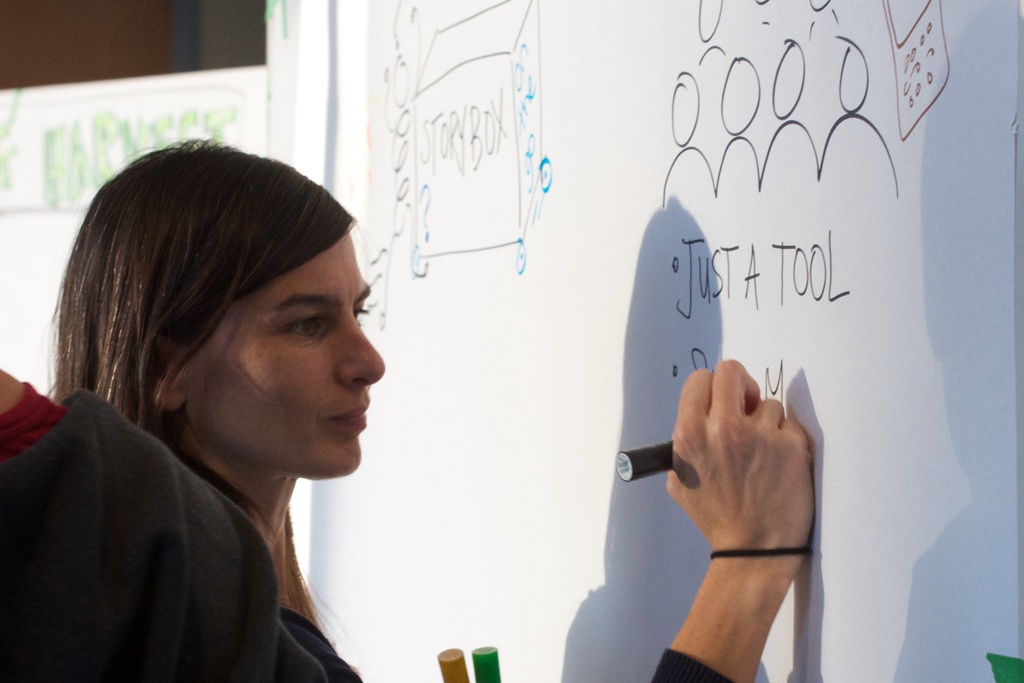 HARVEST
STORYBOX
?
• JUST A TOOL